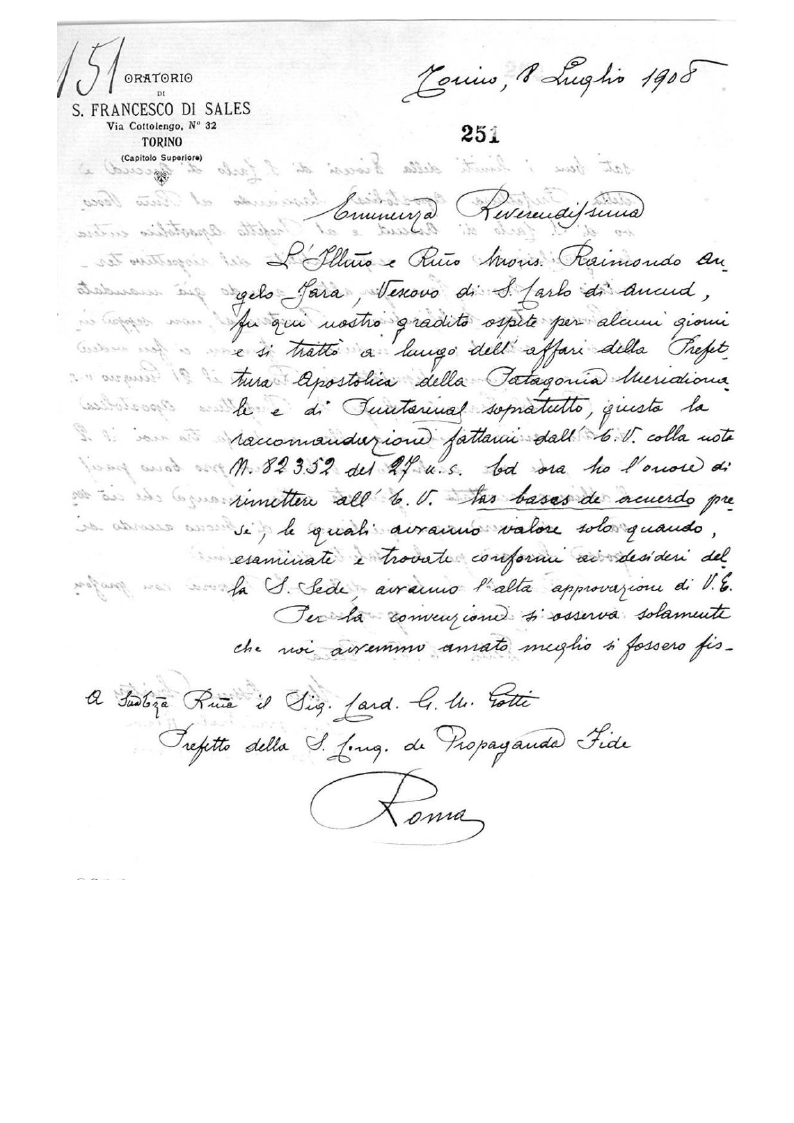 151
ORATORIO
DI
S. FRANCESCO DI SALES
Via Cottolengo, N° 32
TORINO
(Capitolo Superiore)
Torino, 8 Luglio 1908
251
Eminenza Reverendissima
L'Illm̃o e Rm̃o Mons. Raimondo An-
gelo Jara, Vescovo di S. Carlo di Ancud,
fu qui nostro gradito ospite per alcuni giorni
e si trattò a lungo dell'affari della Prefet-
tura Apostolica della Patagonia Meridiona-
le e di Puntarenas sopratutto, giusta la
raccomandazione fattami dall'E.V. colla nota
N. 82352 del 27 u. s. Ed ora ho l'onore di
rimettere all'E.V. las bases de acuerdo pre-
se, le quali avranno valore solo quando,
esaminate e trovate conformi ai desideri del
la S. Sede, avranno l'alta approvazione di V.E.
Per la convenzione si osserva solamente
che noi avremmo amato meglio si fossero fis-
A Rm̃a il Sig. Card. G. M. Gotti
Prefetto della S. Cong. de Propaganda Fide
Roma